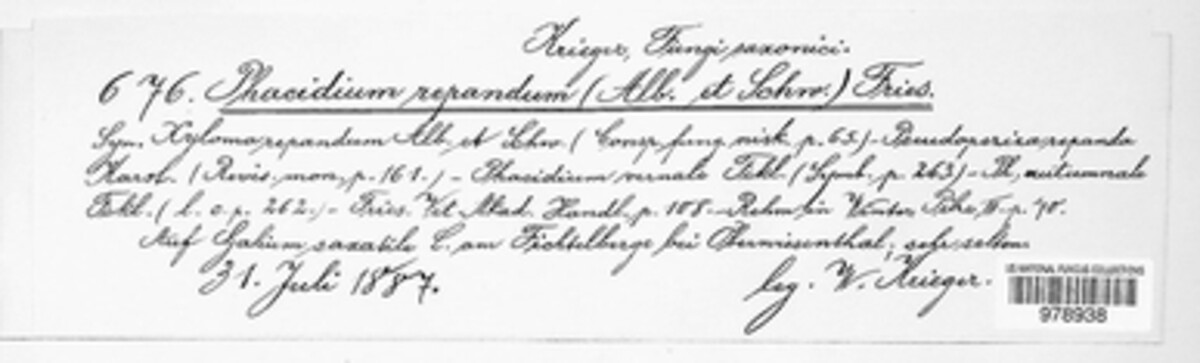 Krieger, Fungi saxonici.
676. Phacidium repandum (Alb. et Schw.) Fries.
Syn. Xyloma repandum Alb. et Schw. (Consp. fung. nisk. p. 65.) - Pseudopeziza repanda
Karst. (Revis. mon. p. 161.) - Phacidium vernale Fckl. (Symb. p. 263) - Ph. autumnale
Fckl. (l. c. p. 262.) - Fries. Vet. Akad. Handl. p. 108. - Rehm in Winter, Pilze, III. p. 70.
Auf Galium saxatile L. am Fichtelberge bei Oberwiesenthal; sehr selten.
31. Juli 1887.
leg. W. Krieger.
US NATIONAL FUNGUS COLLECTIONS
978938